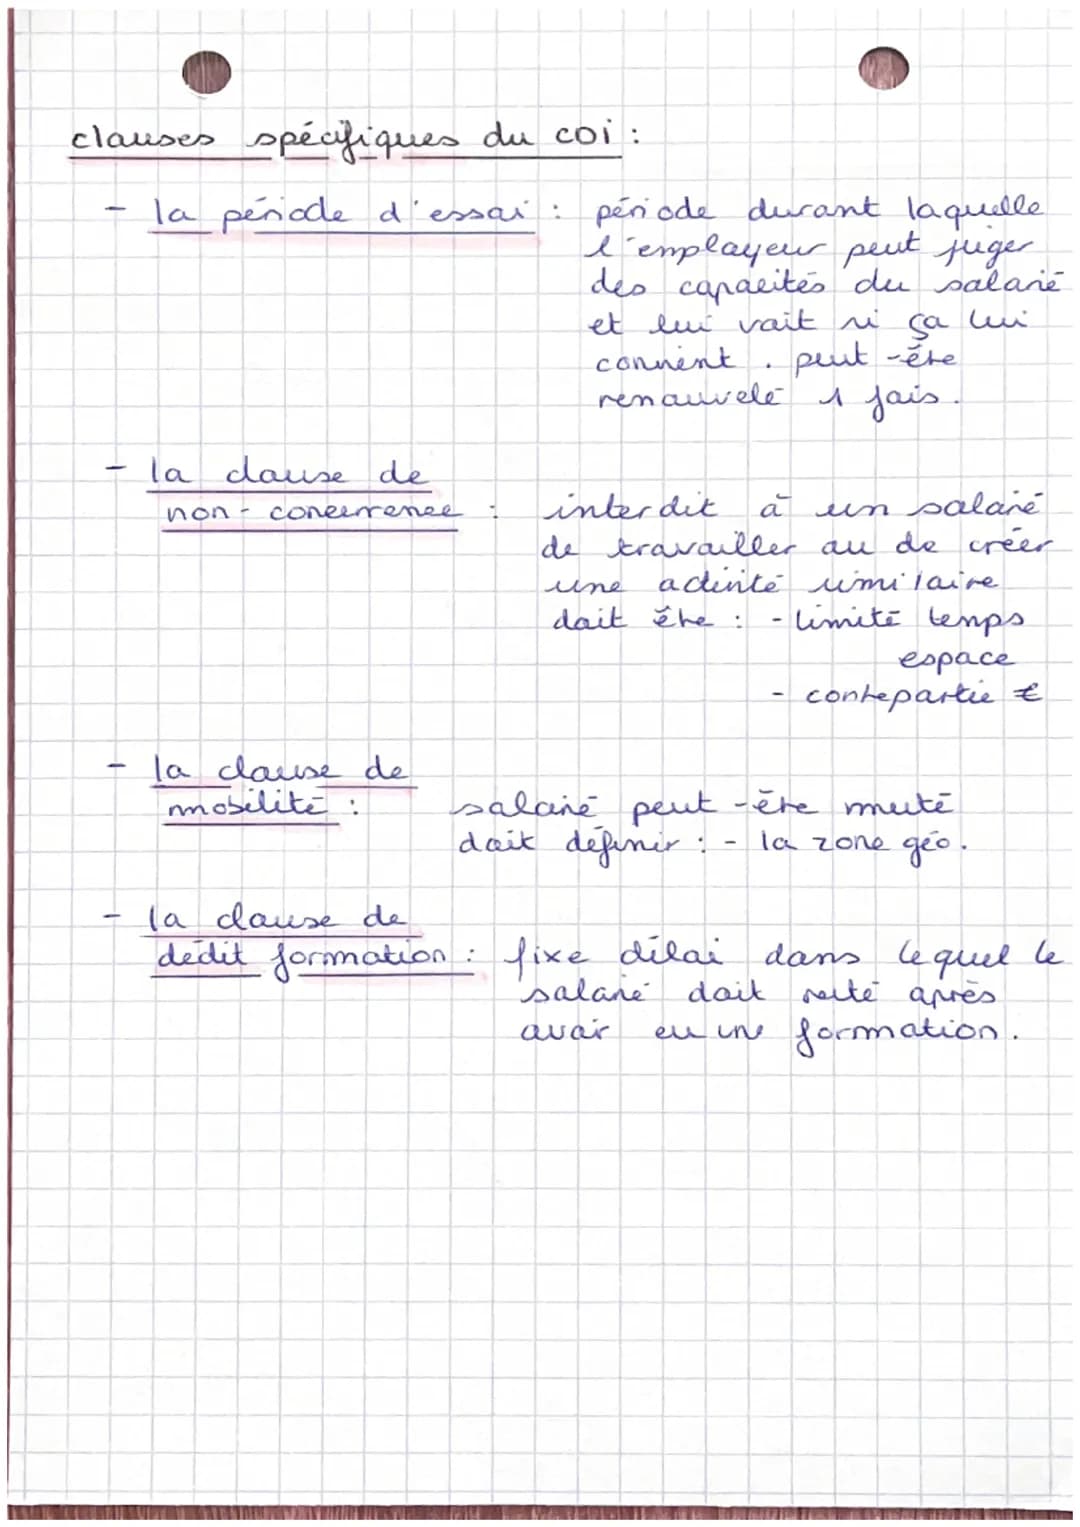 clauses spécifiques du COI :
- la période d'essai : période durant laquelle
l'employeur peut juger
des capacités du salarié
et lui voit si ça lui
convient. peut-être
renouvelé 1 fois.
- la clause de
non-concurrence : interdit à un salarié
de travailler ou de créer
une activité similaire
doit être : - limité temps
espace
- contrepartie €
- la clause de
mobilité : salarié peut-être muté
doit définir : - la zone géo.
- la clause de
dédit formation : fixe délai dans lequel le
salarié doit resté après
avoir eu une formation.